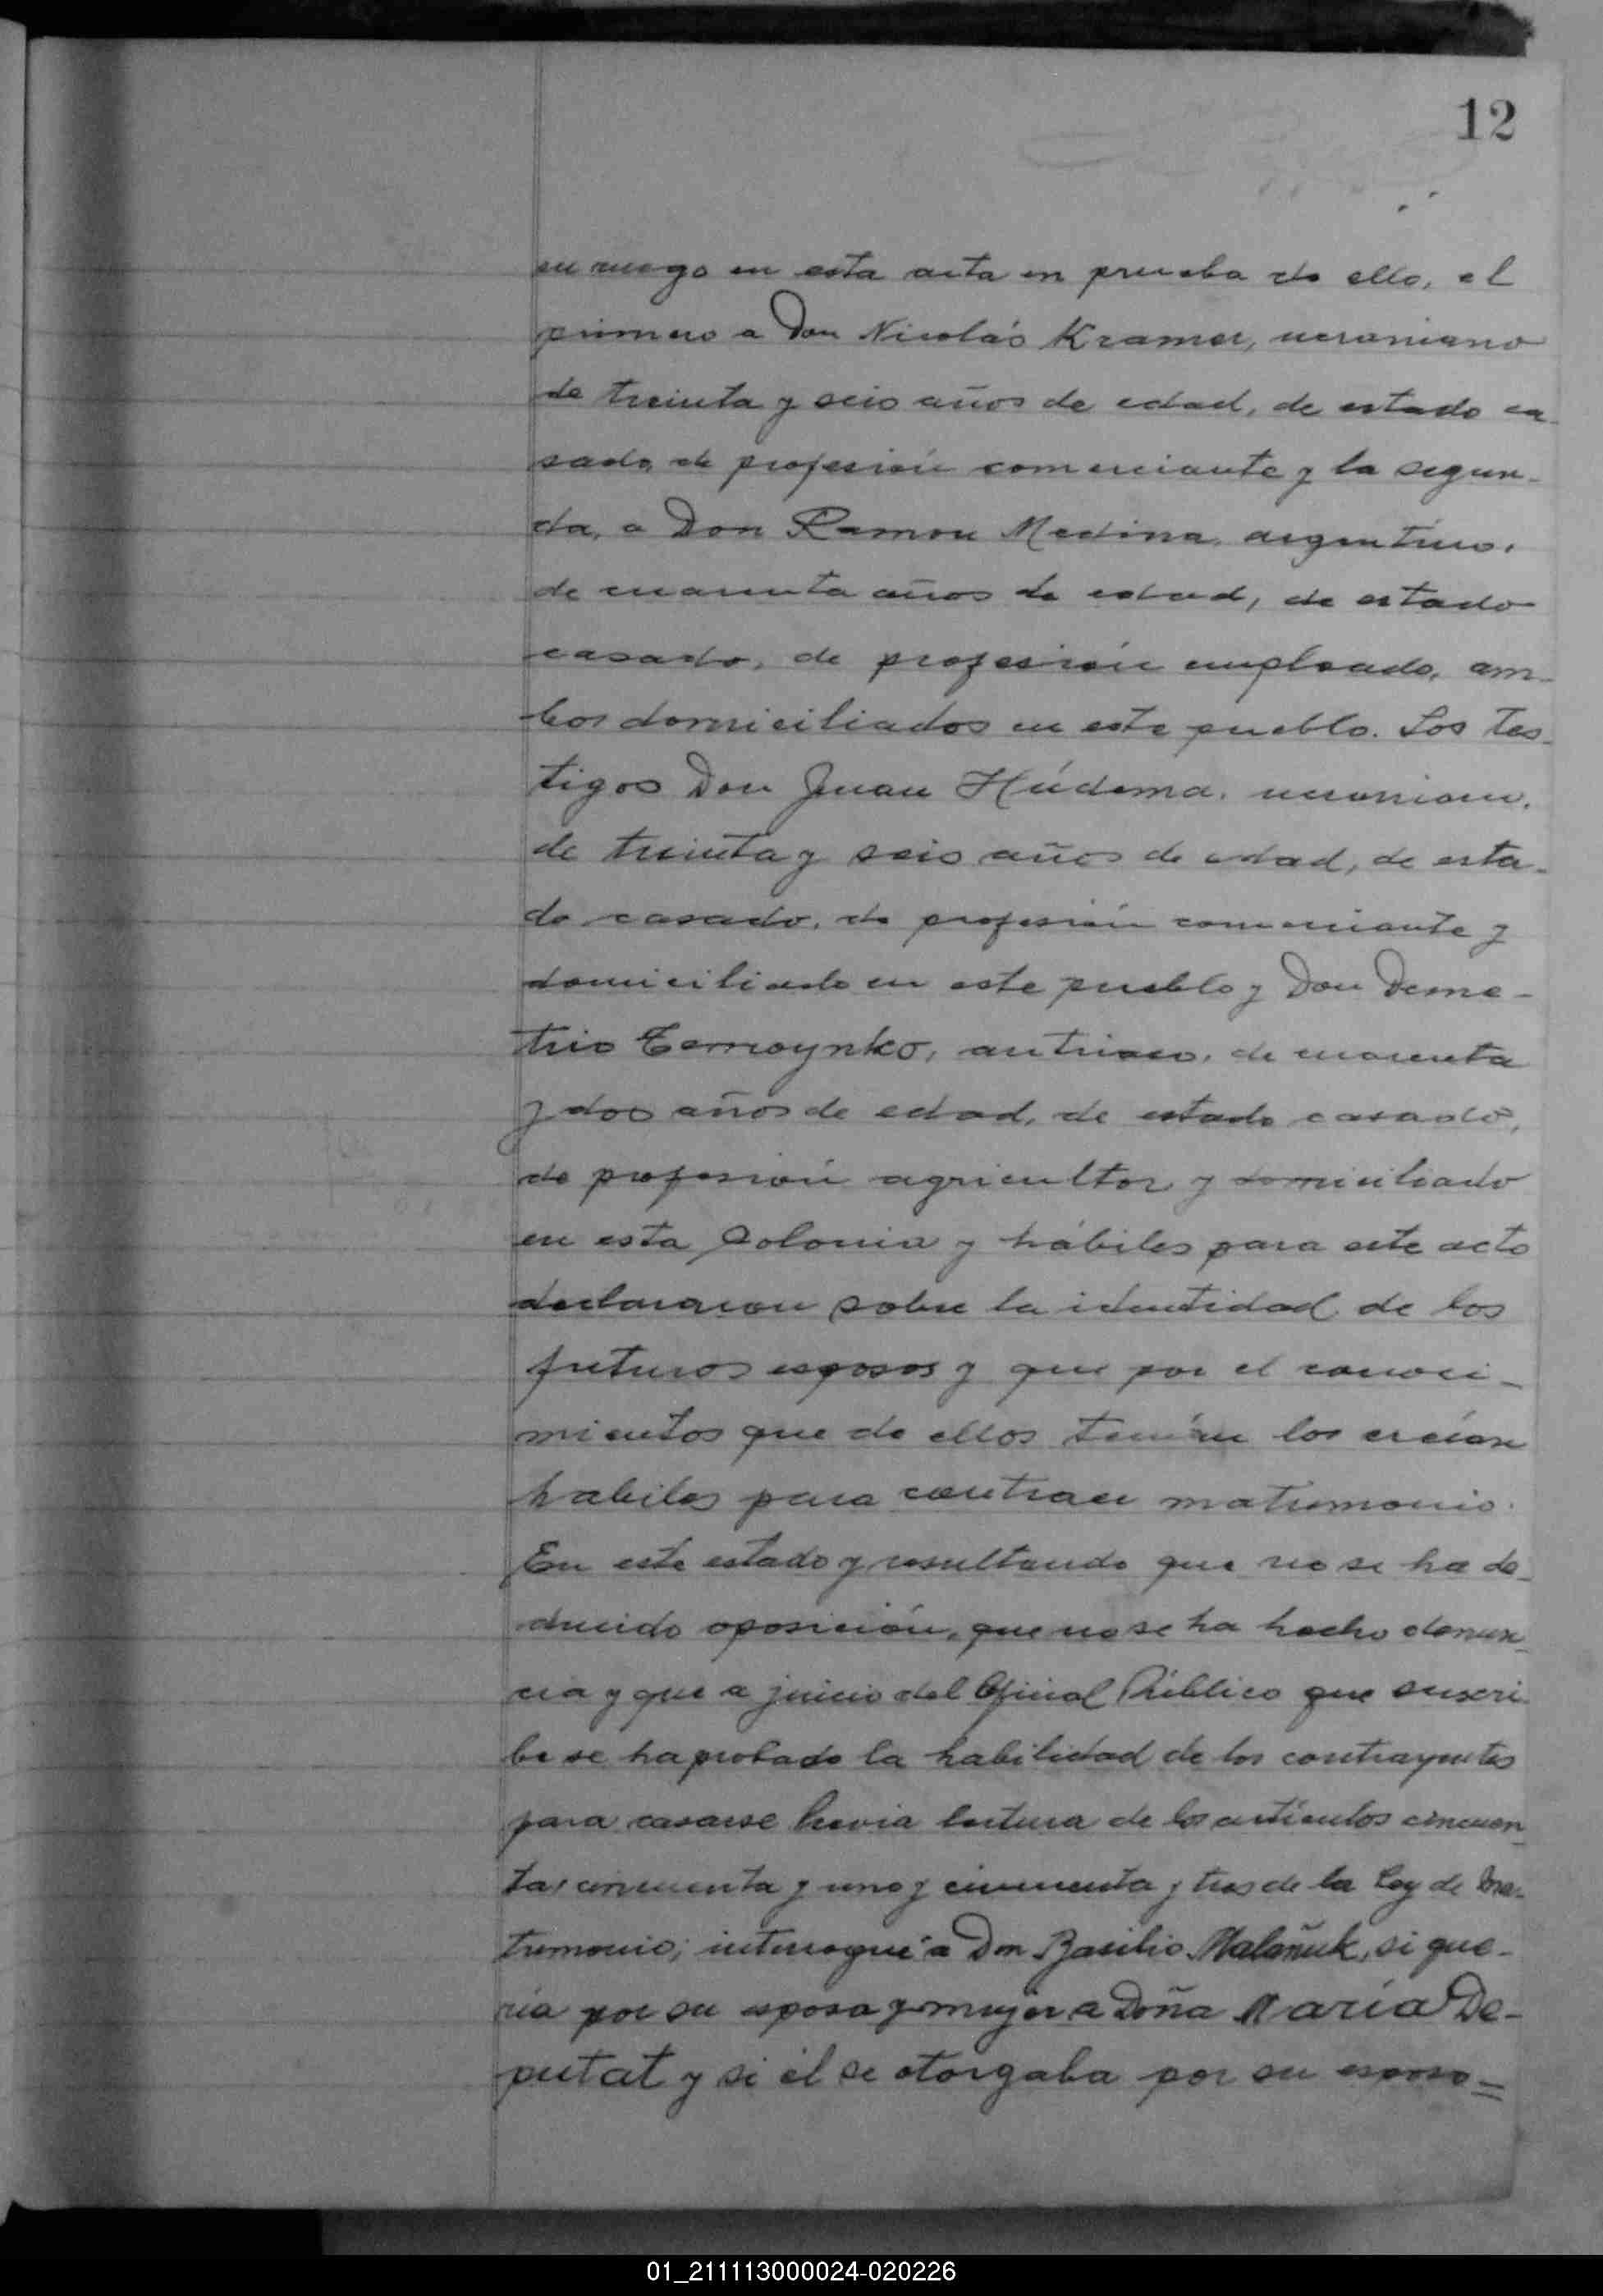 12
su ruego en esta acta en prueba de ello, el
primero a Don Nicolás Kramer, ucraniano
de treinta y seis años de edad, de estado ca-
sado, de profesión comerciante y la segun-
da, a Don Ramon Medina, argentino,
de cuarenta años de edad, de estado
casado, de profesión empleado, am-
bos domiciliados en este pueblo. Los tes-
tigos Don Juan Húdema, ucraniano,
de treinta y seis años de edad, de esta-
do casado, de profesión comerciante y
domiciliado en este pueblo y Don Deme-
trio, austriaco, de cuarenta
y dos años de edad, de estado casado,
de profesión agricultor y domiciliado
en esta Colonia y hábiles para este acto
declararon sobre la identidad de los
futuros esposos y que por el conoci-
mientos que de ellos tenían los creían
habiles para contraer matrimonio.
En este estado y resultando que no se ha de-
ducido oposición, que no se ha hecho denun-
cia y que a juicio del Oficial Público que suscri-
be se ha probado la habilidad de los contrayentes
para casarse previa lectura de los artículos cincuen-
ta, cincuenta y uno y cincuenta y tres de la Ley de Ma-
trimonio; interrogué a Don Basilio Malañuk, si que-
ría por su esposa y mujer a Doña María De-
putat y si él se otorgaba por su esposo=
01_211113000024-020226